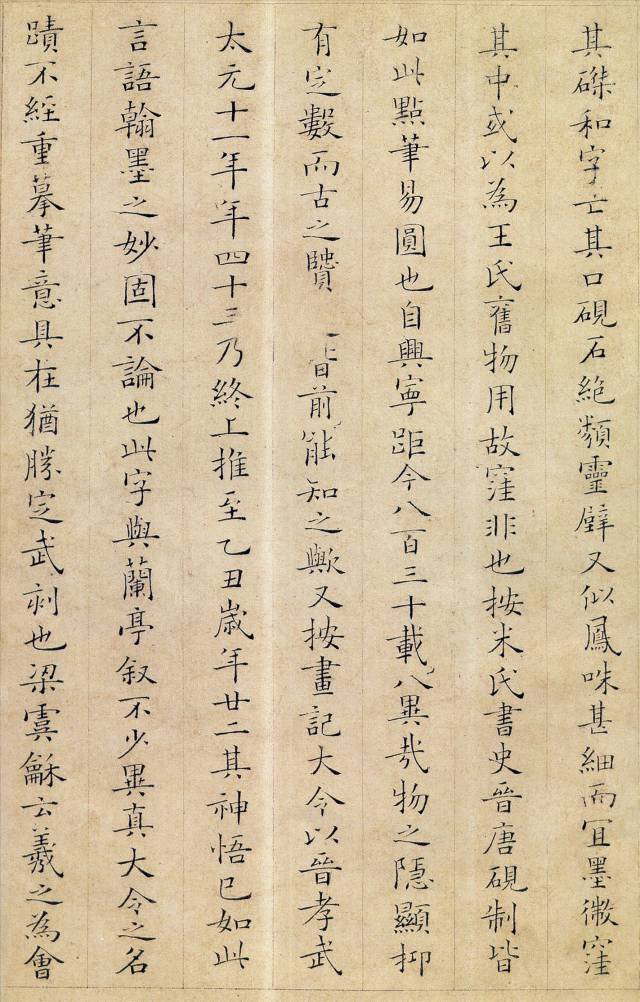 其磔和字亡其口硯石絶類靈璧又似鳳咮甚細而冝墨微窪
其中或以為王氏舊物用故窪非也按米氏書史晉唐硯制皆
如此點筆易圓也自興寧距今八百三十載異哉物之隱顯抑
有定數而古之贒前能知之歟又按畫記大令以晉孝武
太元十一年年四十三乃終上推至乙丑嵗年廿二其神悟已如此
言語翰墨之妙固不論也此字與蘭亭叙不少異真大令之名
蹟不經重摹筆意具在猶勝定武刻也梁虞龢云羲之為會